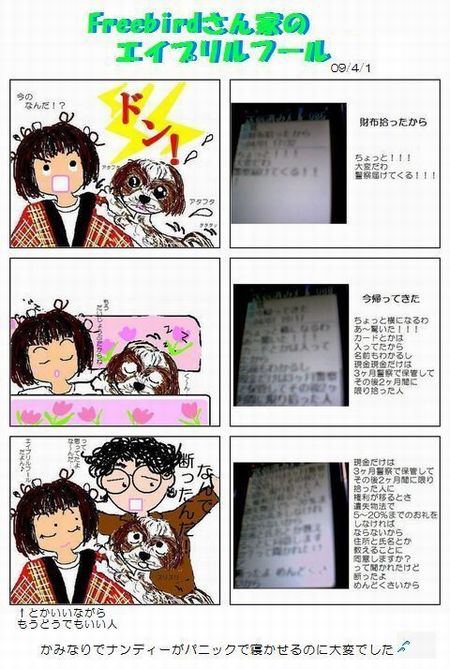 Freebirdさん家の
エイプリルフール
09/4/1
今の
なんだ！？
ドン！
アタフタ
アタフタ
財布拾ったから
ちょっと！！！
大変だわ
警察届けてくる！！！
今帰ってきた
ちょっと横になるわ
あ～驚いた！！！
カードとかは
入ってたから
名前もわかるし
現金現金だけは
3ヶ月警察で保管して
その後2ヶ月間に
限り拾った人
なんで
断ったんだ！
って
思ってたよ
な～んだ
エイプリルフール
だよん♪
スリスリ
現金だけは
3ヶ月警察で保管して
その後2ヶ月間に限り
拾った人に
権利が移るとさ
遺失物法で
5～20％までのお礼を
しなければ
ならないから
住所と氏名とか
教えることに
同意しますか？
って聞かれたけど
断ったよ
めんどくさいから
↑とかいいながら
もうどうでもいい人
かみなりでナンディーがパニックで寝かせるのに大変でした